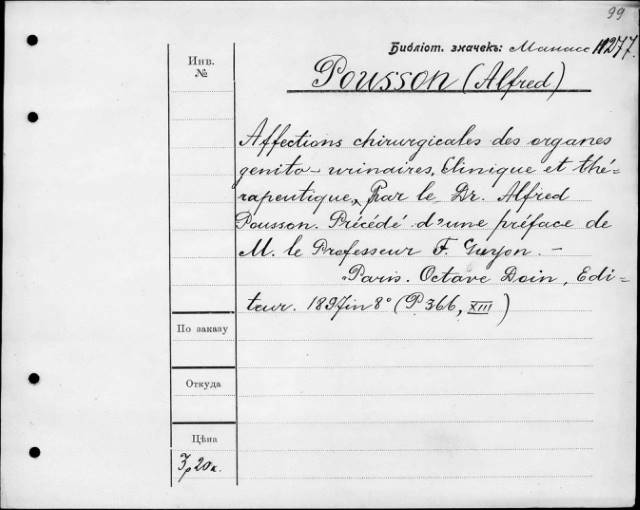 99
Библіот. значекъ: Манасс 11277.
Инв.
№
Pousson (Alfred)
Affections chirurgicales des organes
genito-urinaires. Clinique et thé-
rapeutique, Par le Dr. Alfred
Pousson. Précédé d'une préface de
M. le Professeur F. Guyon. –
Paris. Octave Doin, Edi-
teur. 1897 in 8° (P. 366, XIII)
По заказу
Откуда
Цѣна
3р 20к.